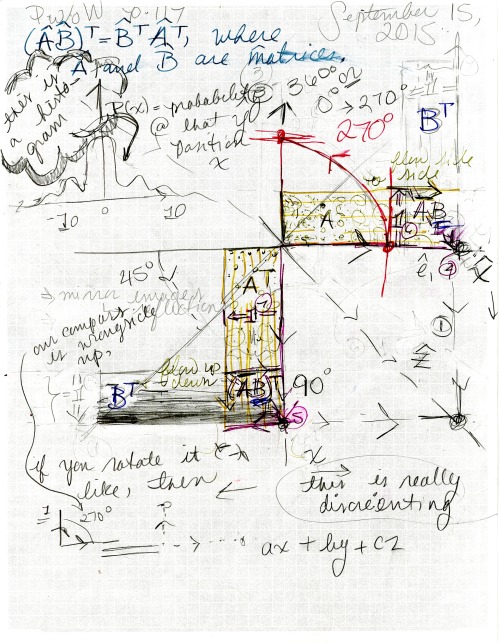 PWOW p. 117
September 15,
2015
(ÂB̂)ᵀ = B̂ᵀÂᵀ, where
A and B are matrices.
this is
a histo-
gram
P(x) = probability
@ that
position
x
360° or
0° → 270°
270°
Bᵀ
side
side
A
AB
-10 0 10
ê₁
④
45°
Aᵀ
mirror images
our compass
is wrongside
up.
①
ẑ
blow up
down
Bᵀ
(AB)ᵀ
90°
⑤
if you rotate it
like, then
x
this is really
discreénting
270°
ax + by + cz